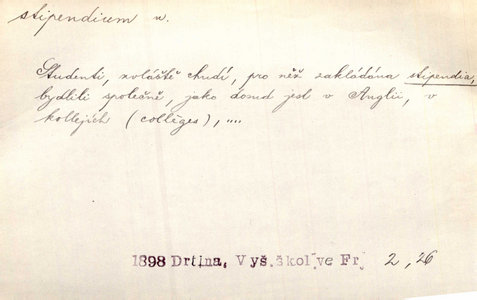 stipendium n.
Studenti, zvláště chudí, pro něž zakládána stipendia,
bydlili společně, jako dosud jest v Anglii, v
kollejích (collèges), ....
1898 Drtina, Vyš.škol.ve Fr. 2, 26